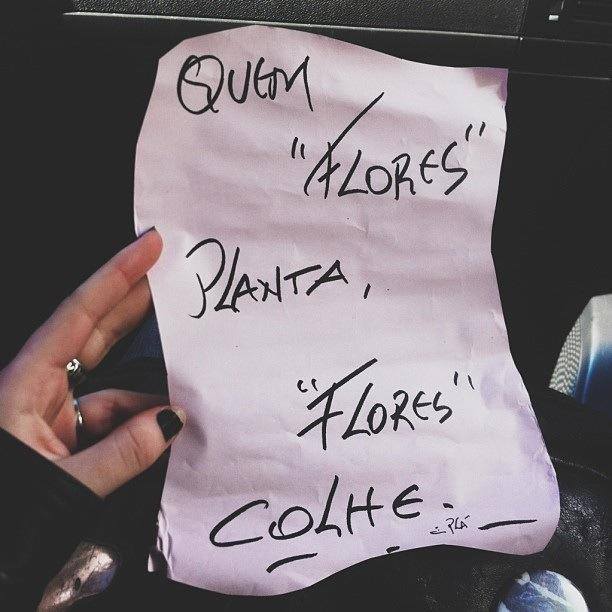 QUEM
"FLORES"
PLANTA,
"FLORES"
COLHE.